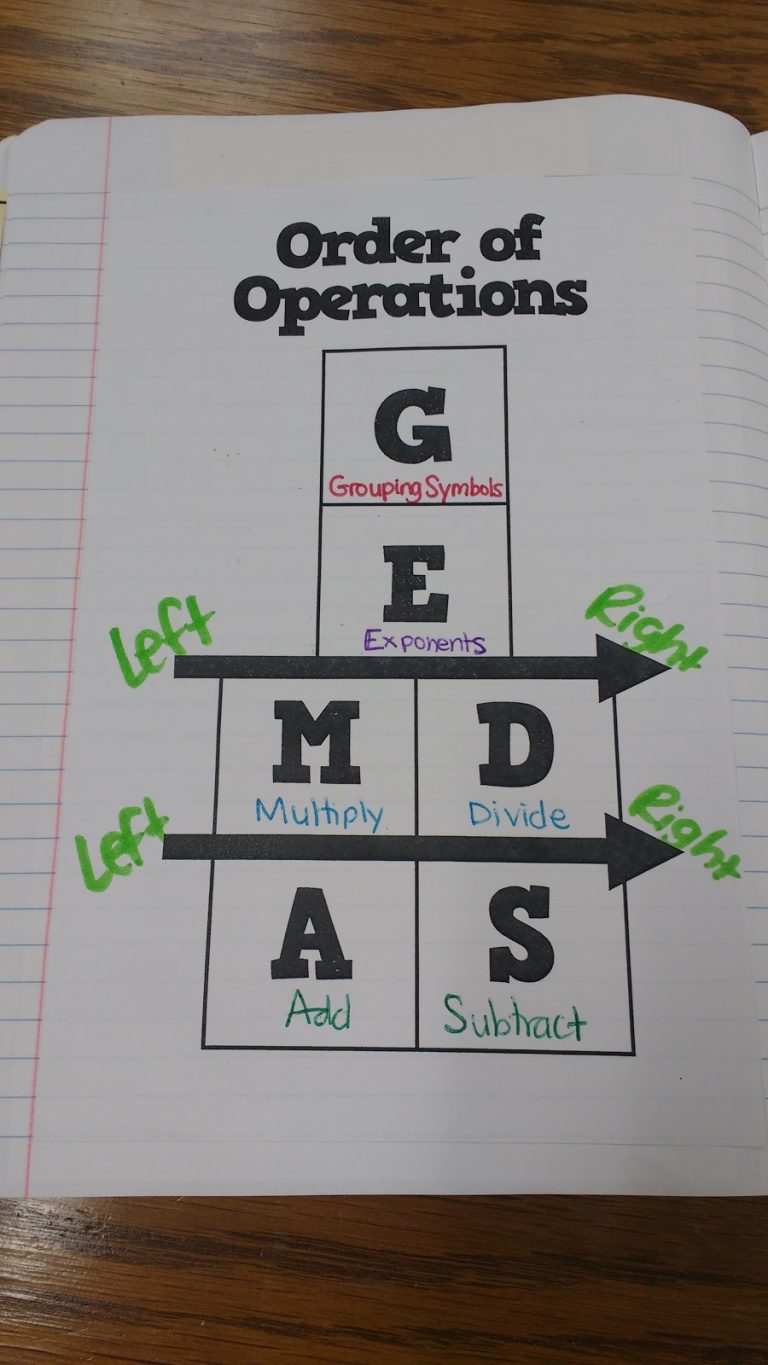 Order of
Operations
G
Grouping Symbols
E
Exponents
Left Right
M D
Multiply Divide
Left Right
A S
Add Subtract